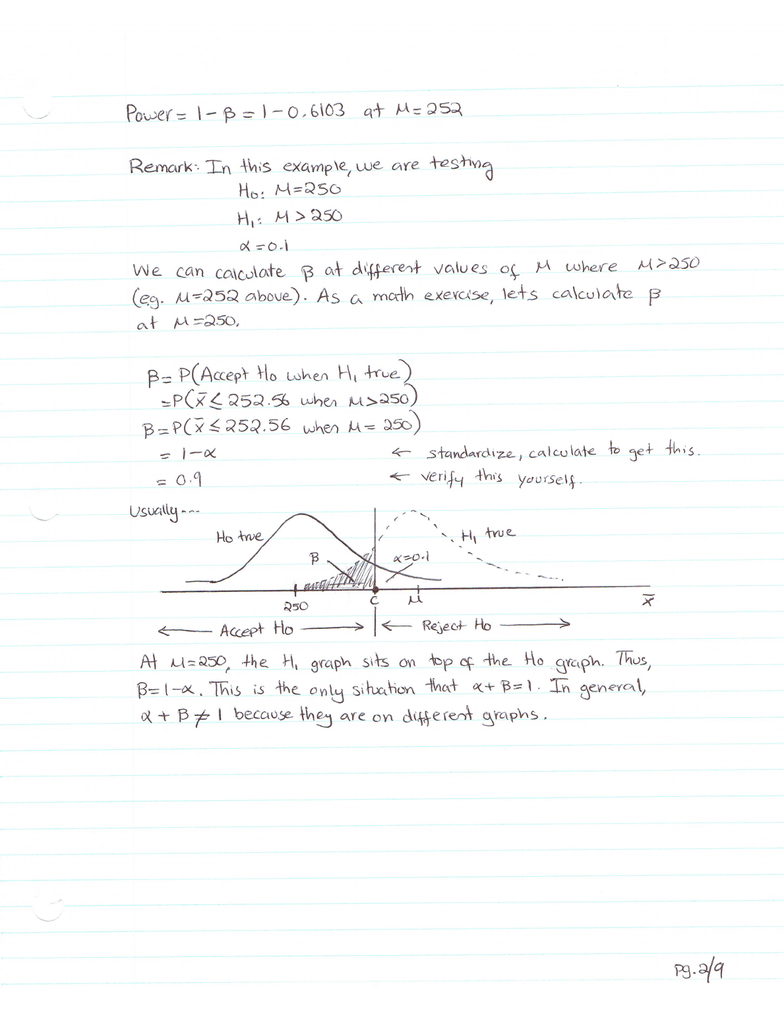 Power = 1-β = 1-0.6103 at M=252
Remark: In this example, we are testing
H₀: M=250
H₁: M > 250
α = 0.1
We can calculate β at different values of M where M>250
(eg. M=252 above). As a math exercise, lets calculate β
at M=250.
β = P(Accept H₀ when H₁ true)
=P(x̄ ≤ 252.56 when M>250)
β=P(x̄ ≤ 252.56 when M = 250)
= 1-α ← standardize, calculate to get this.
= 0.9 ← verify this yourself.
Usually---
H₀ true H₁ true
β α=0.1
250 C M x̄
← Accept H₀ → ← Reject H₀ →
At M=250, the H₁ graph sits on top of the H₀ graph. Thus,
β=1-α. This is the only situation that α+β=1. In general,
α + β ≠ 1 because they are on different graphs.
pg. 2/9